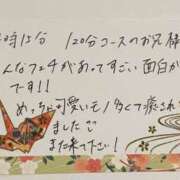 時15分 120分コースのお兄様
んなフェチがあってすごい面白か
です!!
めっちゃ可愛いモノ多くて癒され
ました
また来て下さい!